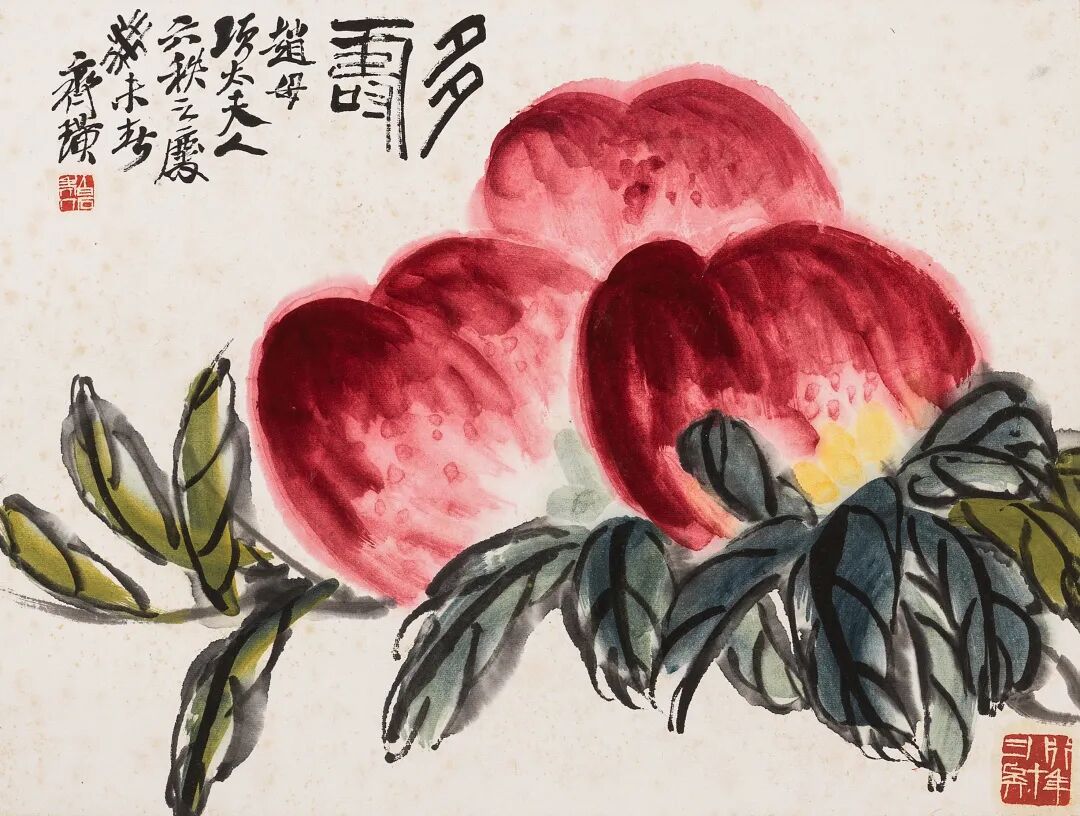 多壽
趙母
項太夫人
六秩之慶
癸未春
齊璜